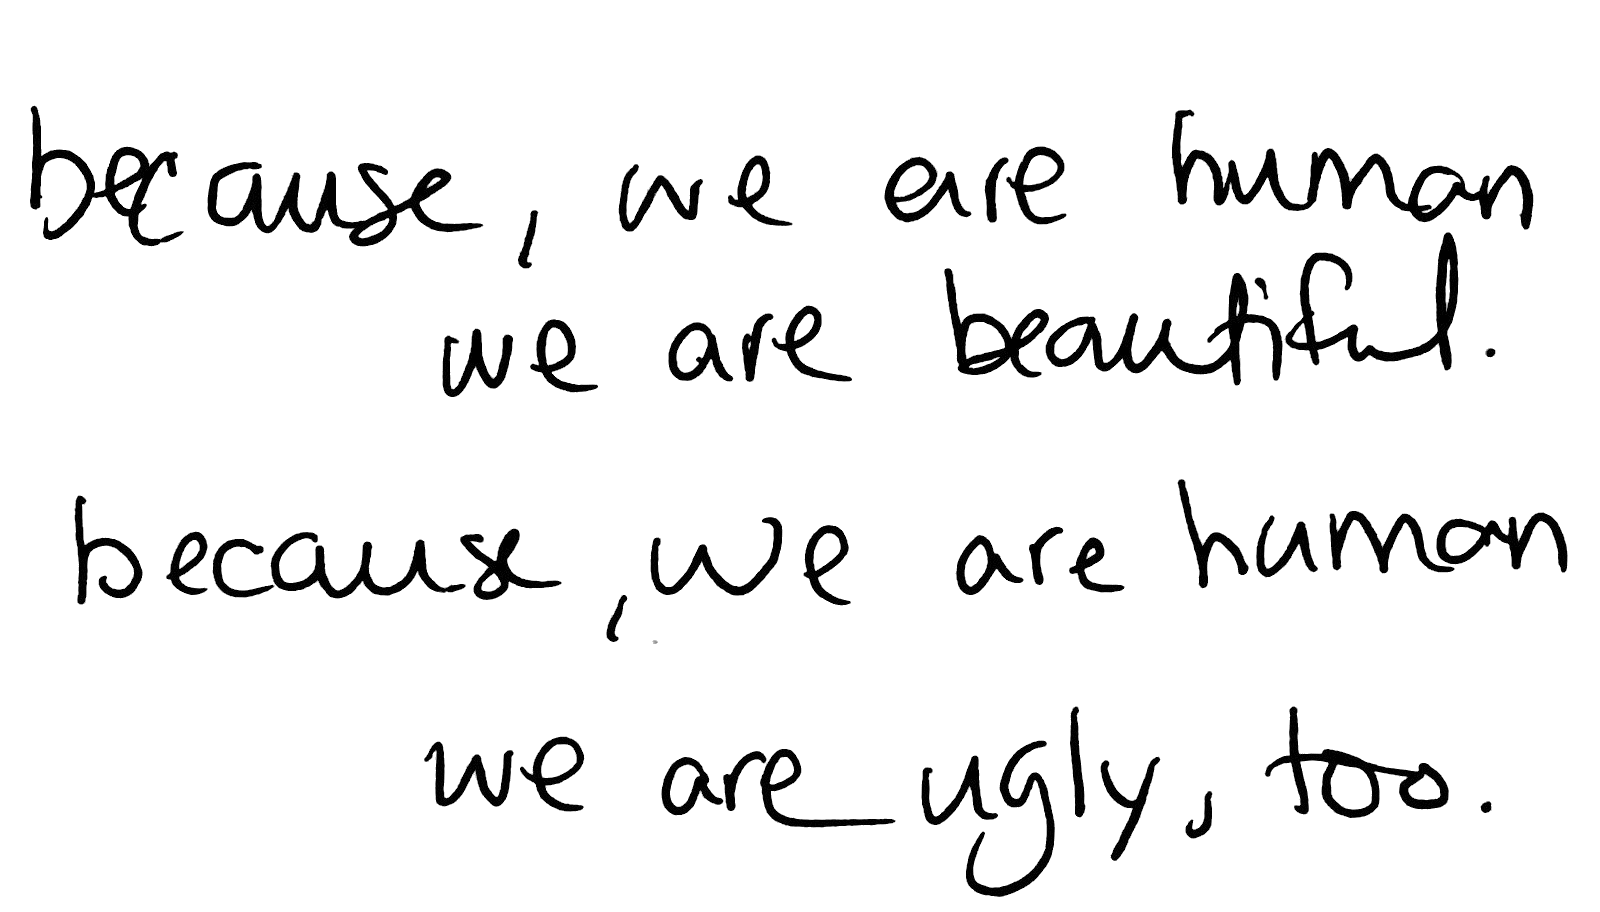 because, we are human
we are beautiful.
because, we are human
we are ugly, too.